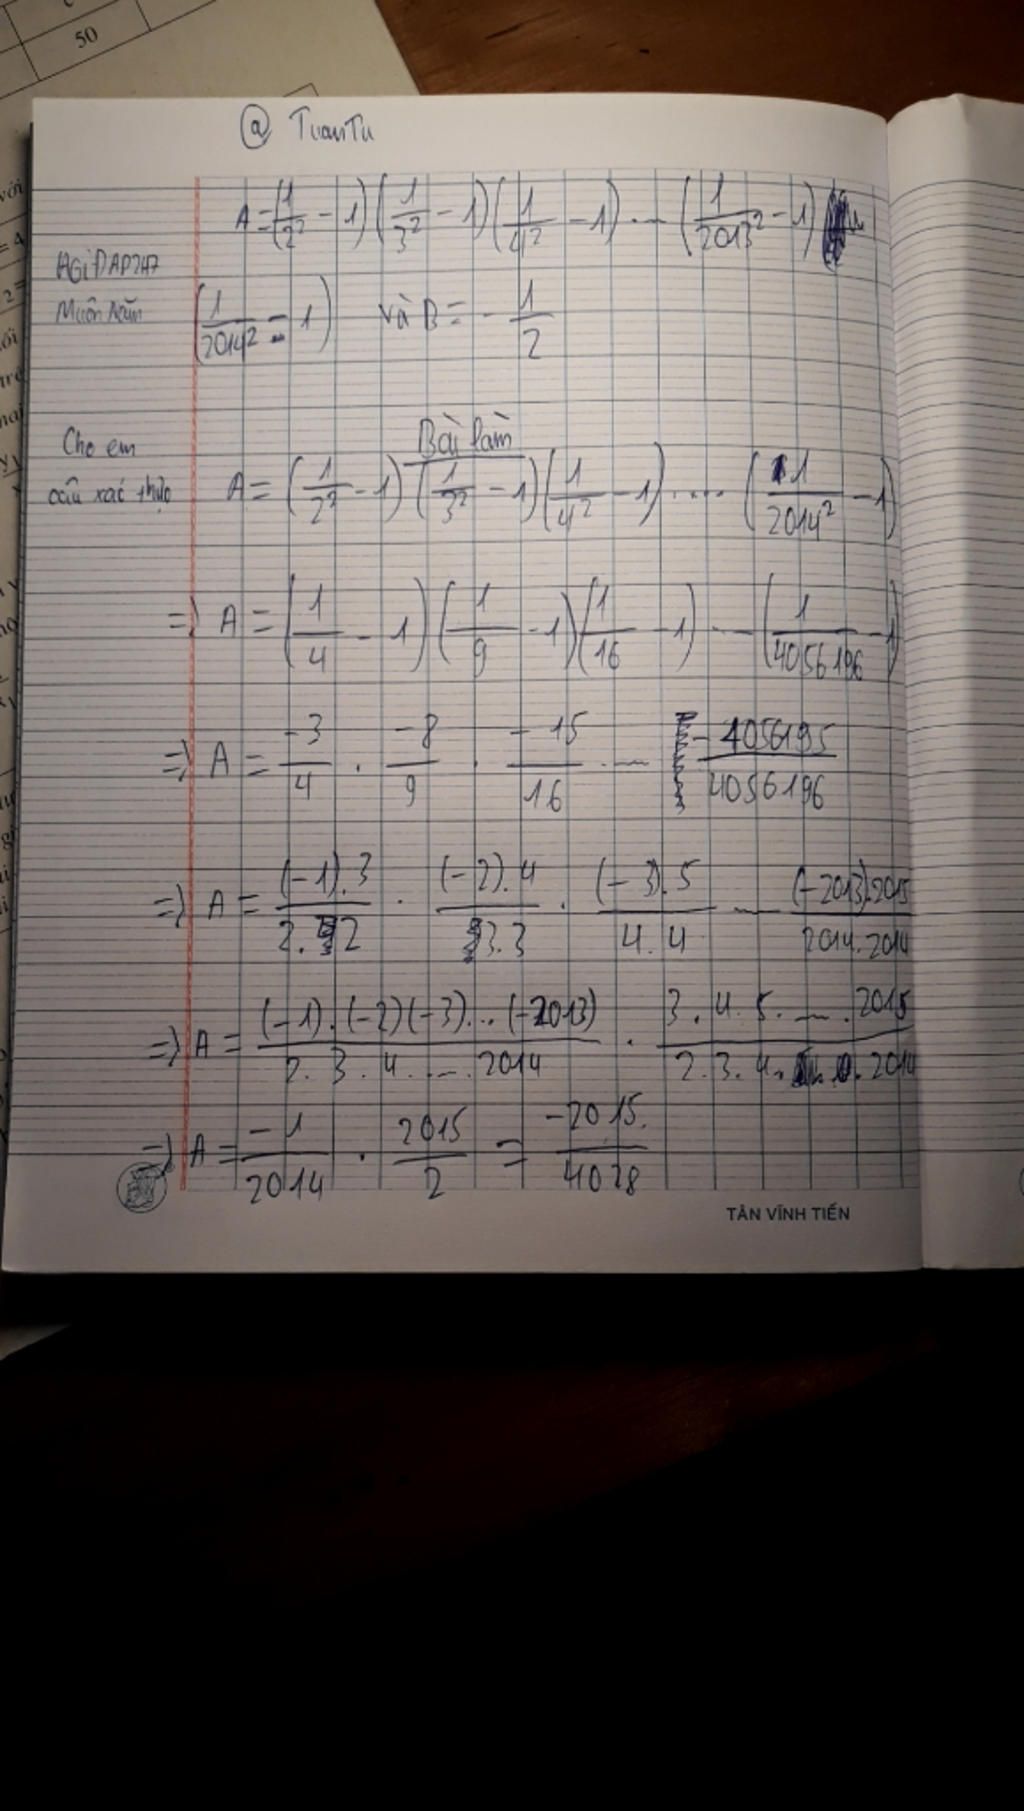 50
@ TuanTu
A = (1/2² - 1) (1/3² - 1) (1/4² - 1) ... (1/2013² - 1)
HỏiĐAP247
Muôn năm (1/2014² - 1) và B = - 1/2
Cho em Bài làm
câu xác thực A = (1/2² - 1) (1/3² - 1) (1/4² - 1) .... (1/2014² - 1)
=> A = (1/4 - 1) (1/9 - 1) (1/16 - 1) ... (1/4056196 - 1)
=> A = -3/4 . -8/9 . -15/16 ... -4056195/4056196
=> A = (-1).3/2.2 . (-2).4/3.3 . (-3).5/4.4 ... (-2013).2015/2014.2014
=> A = (-1).(-2)(-3)...(-2013)/2.3.4. ... .2014 . 3.4.5. ... .2015/2.3.4. ... .2014
=> A = -1/2014 . 2015/2 = -2015/4028
TÂN VĨNH TIẾN